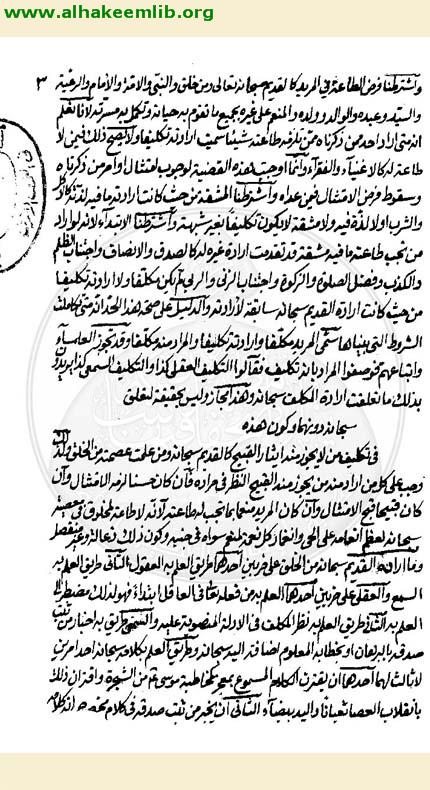 www.alhakeemlib.org
٣
واشترطنا فرض الطاعة في المريد كالقديم سبحانه تعالى ومن خلق والنبي والأمة والإمام والرعية
والسيد وعبده والوالد وولده والمنعم على غيره بجميع ما تقوم به حياته وتكمل به مسرته لأنا نعلم
انه متى اراد احد من ذكرناه ممن يلزمه طاعته شيئا سميت ارادته تكليفا ولا يصح ذلك فيمن لا
طاعة له كالاغنياء والفقراء وانما وجبت هذه القضية لوجوب امتثال اوامر من ذكرناه
وسقوط فرض الامتثال فمن عداه واشترطنا المشقة من حيث كانت ارادته ما فيه لذة كالاكل
والشرب اولا لذة فيه ولا مشقة لا يكون تكليفا بغير شبهة واشترطنا الابتداء لانه لو اراد
من تجب طاعته ما فيه مشقة قد تقدمت ارادة غيره له كالصدق والانصاف واجتناب الظلم
والكذب وفضل الصلوة والزكوة واجتناب الزنى والربى لم يكن مكلفا ولا ارادته تكليفا
من حيث كانت ارادة القديم سبحانه سابقة لارادته والدليل على صحة هذا الحد انه متى تكاملت
الشروط التى بيناها سمى المريد مكلفا وارادته تكليفا والمراد منه مكلفا وقد تجوز العلماء
واتباعهم فوصفوا المراد بانه تكليف فقالوا التكليف العقلى كذا والتكليف السمعى كذا يريدون
بذلك ما تعلقت ارادة المكلف سبحانه وهذا مجاز وليس بحقيقة لتعلق
سبحانه دونهما وكون هذه
فى تكليف من لا يجوز منه ايثار القبيح كالقديم سبحانه ومن علمت عصمته من الخلق ولذلك
وجب على كل من اراد منه من يجوز منه القبيح النظر فى مراده فان كان حسنا لزمه الامتثال وان
كان قبيحا قبح الامتثال وان كان المريد منعما يجب له طاعته لانه لا طاعة لمخلوق فى معصية
سبحانه لعظم انعامه على الحى وانغمار كل نعمة لمنعم سواه فى جنبه وكون ذلك
وما اراده القديم سبحانه من الخلق على ضربين احدهما طريق العلم به العقول والثانى طريق العلم به
السمع والعقلى على ضربين احدهما العلم به من فعله تعالى فى العاقل ابتداء فهو لذلك مضطر الى
العلم به والثانى طريق العلم به نظر المكلف فى الادلة المنصوبة عليه والسمعى طريق به اخبار من ثبت
صدقه بالبرهان او بخطابه المعلوم اضافته اليه سبحانه وطريق العلم بكلامه سبحانه احد امرين
لا ثالث لهما احدهما ان يقترن الكلام المسموع بمعجز كمخاطبة موسى من الشجرة واقتران ذلك
بانقلاب العصا ثعبانا واليد بيضاء والثانى ان يخبر من ثبت صدقه فى كلام انه كلام